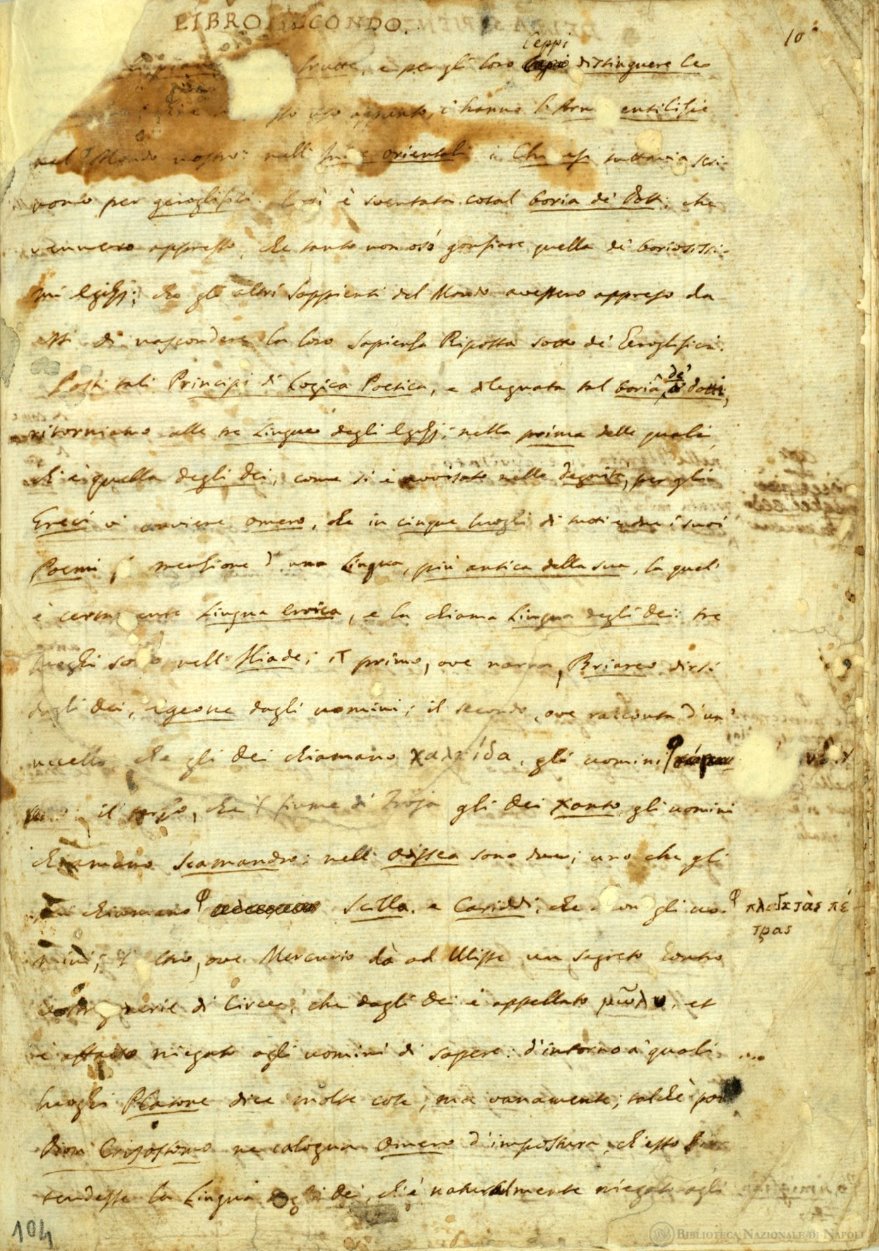 LIBRO SECONDO.
10
Ceppi
frutte, e per gli loro distinguere le
uso appunto, c' hanno l'Arm entilizie
nel Mondo nostro: nell' Ind orientali i Chi esi tuttavia scri-
vono per geroglifici. Così è sventata cotal boria de' Dotti, che
vennero appresso, che tanto non osò gonfiare quella de' boriosissi-
mi Egizj; che gli altri Sappienti del Mondo avessero appreso da
essi di nascondere la loro Sapienza Riposta sotto de' Geroglifici.
Posti tali Principj di Logica Poetica, e dileguata tal boria de' Dotti,
ritorniamo alle tre Lingue degli Egizj; nella prima delle quali,
ch'è quella degli Dei, come si è avvisato nelle Degnità, per gli
Greci vi conviene Omero, che in cinque luoghi di tutti e due i suoi
Poemi fà menzione d' una Lingua, più antica della sua, la qual'
è certamente Lingua Eroica, e la chiama Lingua degli Dei: tre
luoghi sono nell' Iliade; il primo, ove narra, Briareo dirsi
dagli Dei, Egeone dagli uomini; il secondo, ove racconta d' un'
uccello che gli Dei chiamano χαλκίδα, gli uomini
il terzo, che 'l fiume di Troja gli Dei Xanto, gli uomini
chiamano Scamandro: nell' Odissea sono due; uno che gli
Dei chiamano Scilla, e Cariddi, che dicon gli uo-
πλαγκτὰς πέ-
τρας
mini; l' altro, ove Mercurio dà ad Ulisse un segreto contro
le stregonerie di Circe, che dagli Dei è appellato μῶλυ, et
è affatto niegato agli uomini di sapere: d'intorno a' quali
luoghi Platone dice molte cose, ma vanamente; talchè poi
Dion Crisostomo ne calogna Omero d'impostura, ch'esso in-
tendesse la Lingua degli Dei, ch'è naturalmente niegato agli
104
BIBLIOTECA NAZIONALE DI NAPOLI